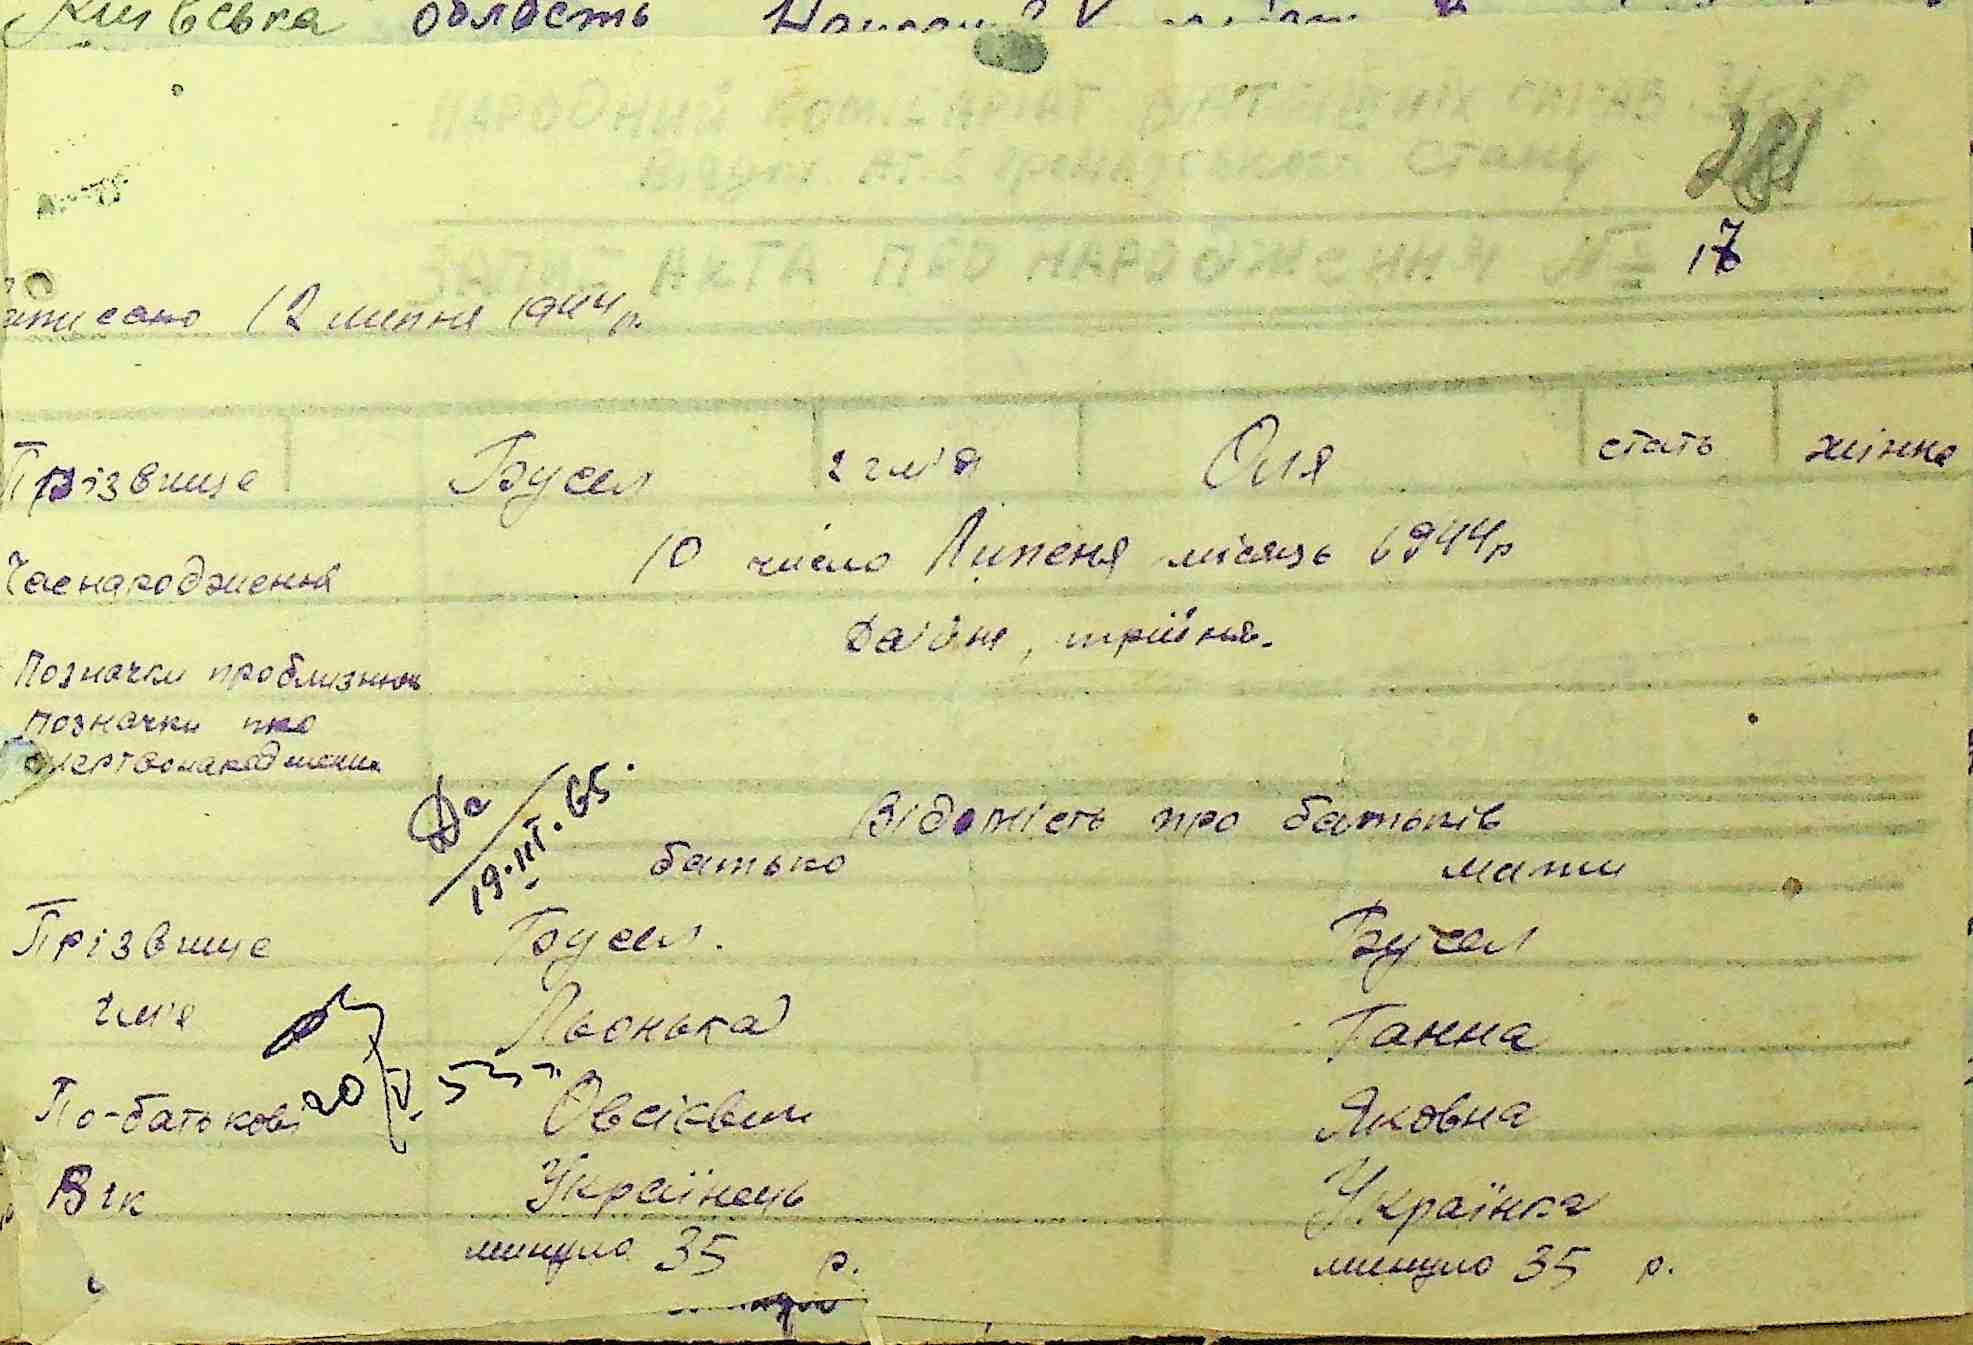 Київська область
НАРОДНИЙ КОМІСАРІАТ ВНУТРІШНІХ СПРАВ УССР
Відділ актів громадського стану
281
ЗАПИС АКТА ПРО НАРОДЖЕННЯ № 17
Записано 12 липня 1944 р.
Прізвище Бусел імʼя Оля стать жіноча
Час народження 10 число Липеня місяць 1944 р
Двійня, трійня.
Позначки про близнюк
позначки про
мертвонароджених
Да 19.III.65.
Відомість про батьків
батько мати
Прізвище Бусел. Бусел
імʼя Льонька Ганна
20 V. 55
По-батькові Овсієвич Яковна
Вік Українець Українка
минуло 35 р. минуло 35 р.